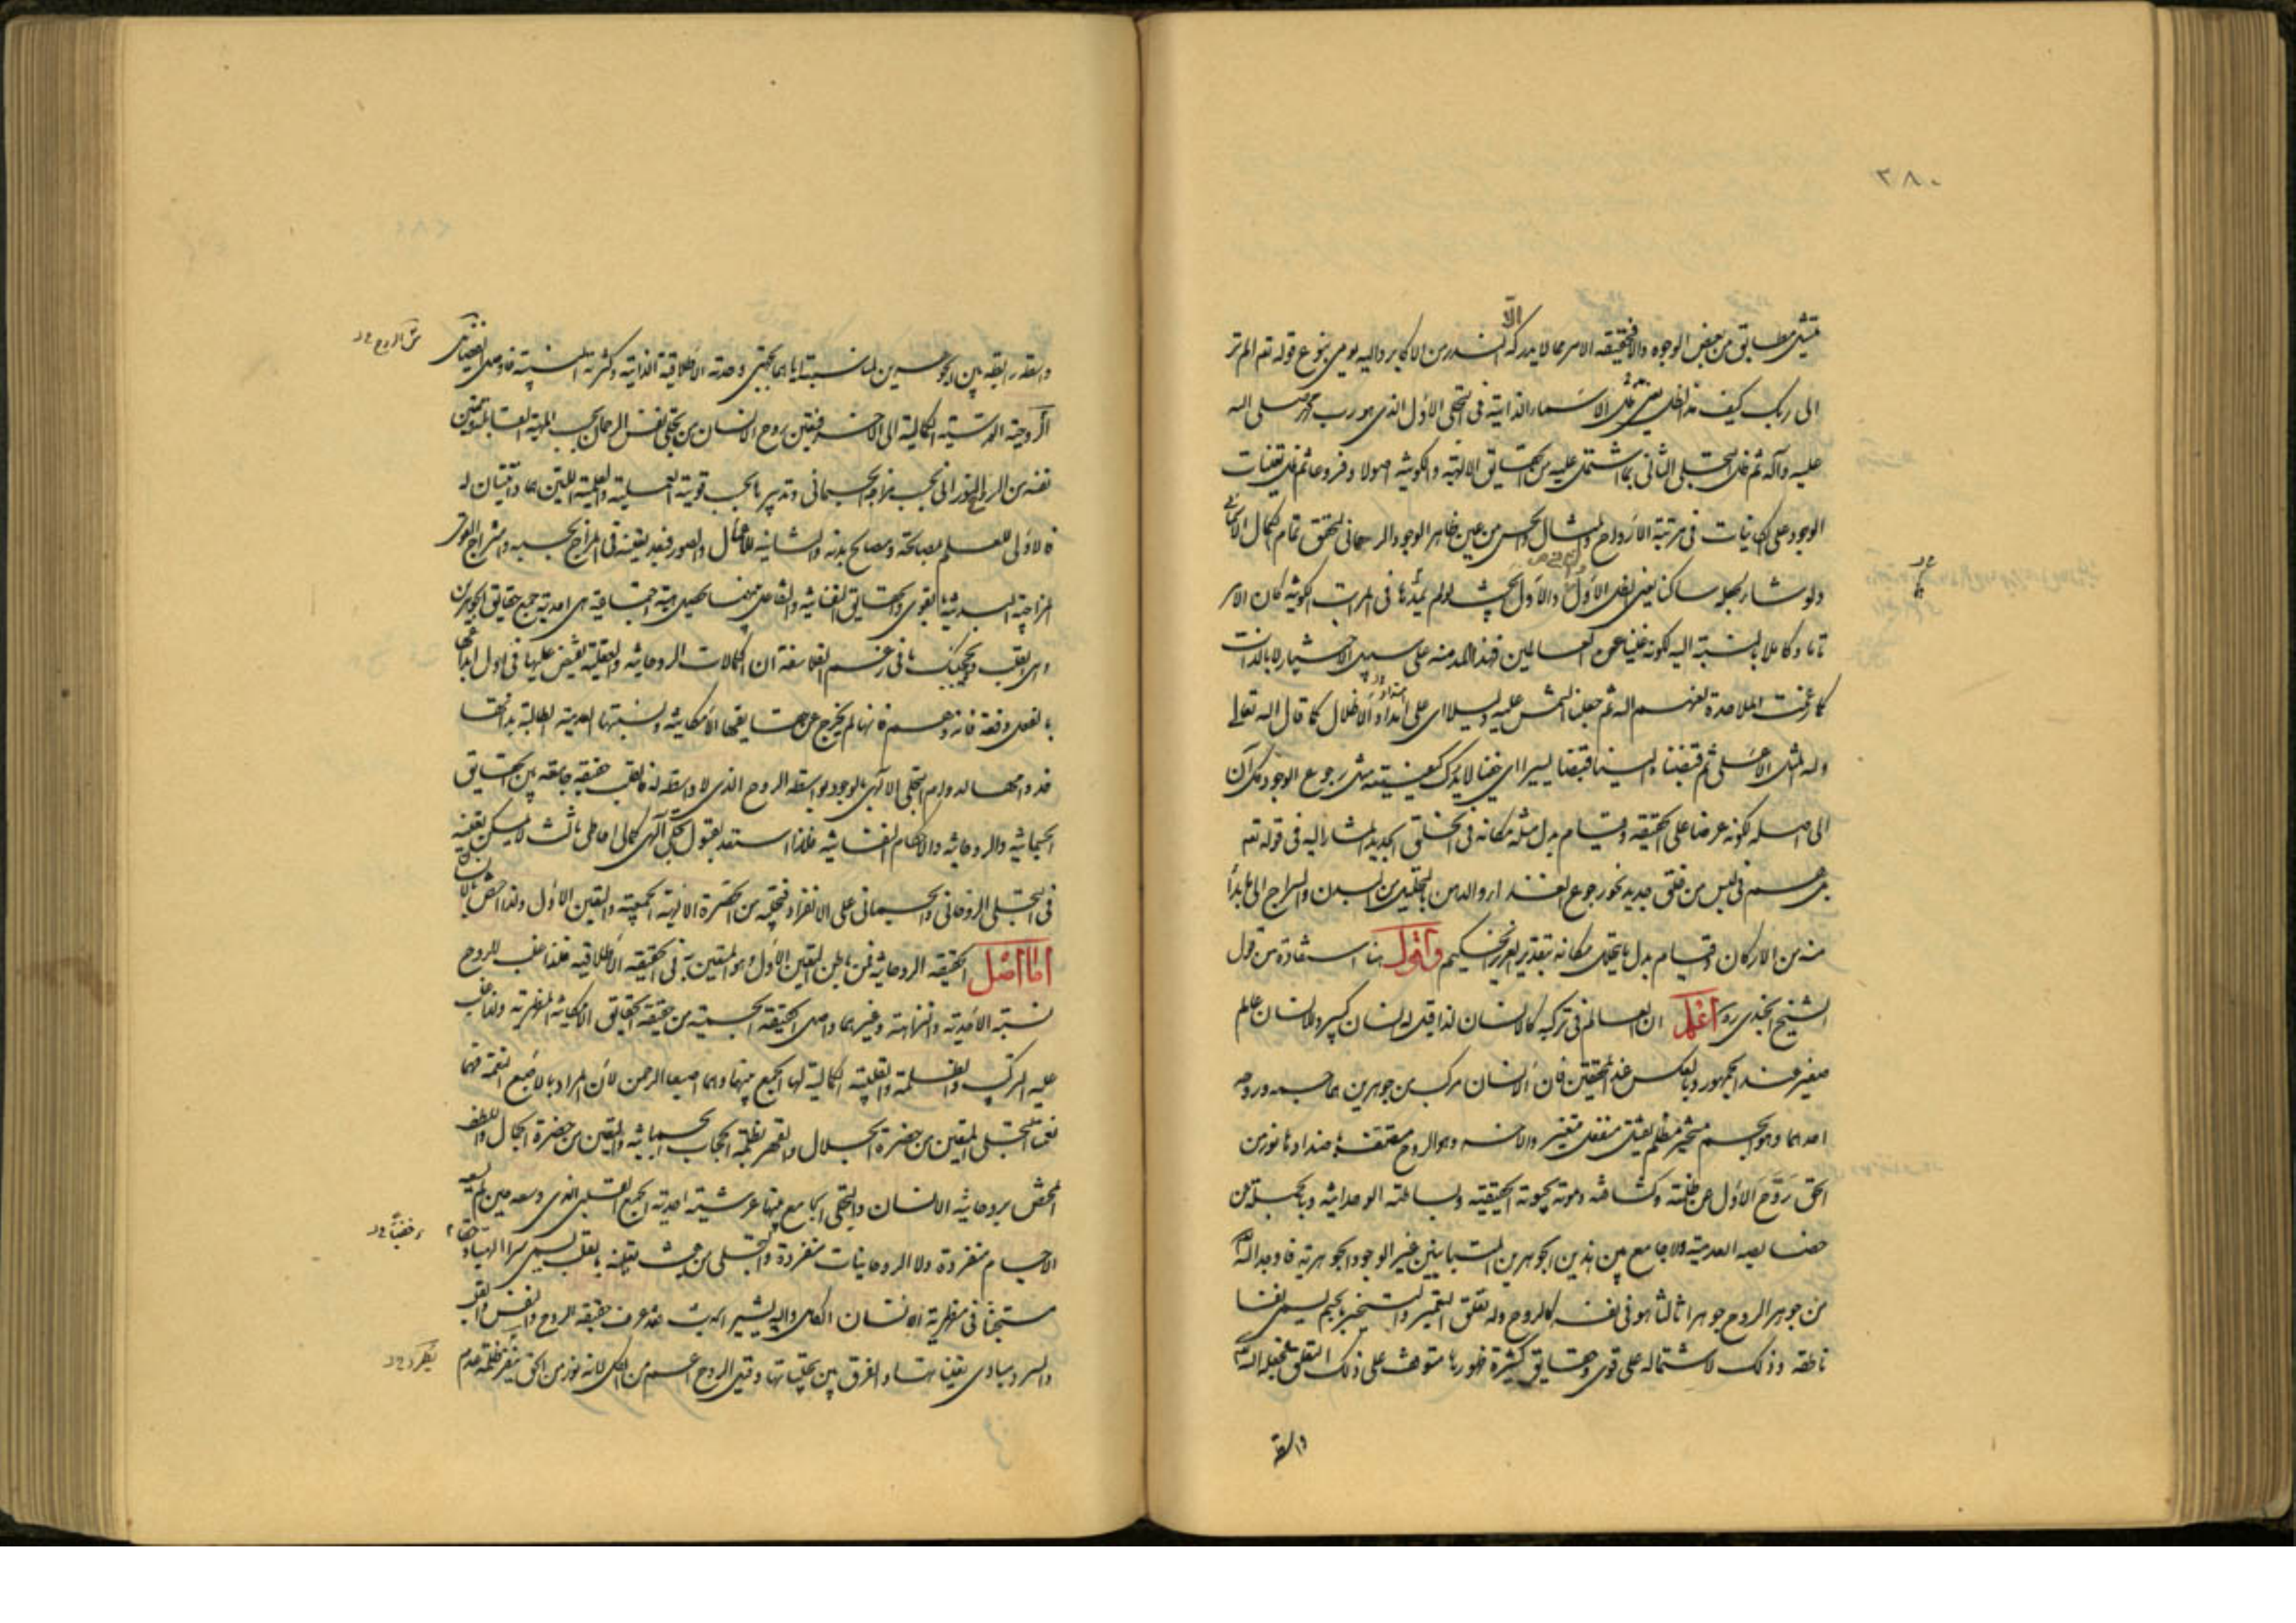 ٣٨٠
تمثيل مطابق من بعض الوجوه والا فحقيقة الامر مما لا يدركه الا الندر من الاكابر واليه يومى بنوع قوله تع الم تر
الى ربك كيف مد الظل يعنى ظل الاسماء الذاتية فى التجلى الاول الذى هو رب محمد صلى الله
عليه وآله ثم ظل التجلى الثانى بما اشتمل عليه من الحقايق الالهية والكونية اصولا وفروعا ثم ظل تعينات
الوجود على الكاينات فى مرتبة الارواح والمثال والحس من عين ظاهر الوجود الرحمانى لتحقق تمام الكمال الاسمائى
ولو شاء لجعله ساكنا يعنى الظل الاول والاول بحيث لو لم يمدها فى المراتب الكونية كان الامر
تاما وكاملا بالنسبة اليه لكونه غنيا عن العالمين فهذا المد منه على سبيل الاختيار لا بالذات
كما زعمت الملاحدة لعنهم الله ثم جعلنا الشمس عليه دليلا اى على امتداد الاظلال كما قال الله تعلى
وله المثل الاعلى ثم قبضناه الينا قبضا يسيرا اى خفيا لا يدرك كيفيته مثل رجوع الوجود كل آن
الى اصله لكونه عرضا على الحقيقة وقيام بدل مثله مكانه فى الخلق الجديد المشار اليه فى قوله تع
بل هم فى لبس من خلق جديد نحو رجوع الغذاء والدهن بالتحليل من البدن والسراج الى ما بدأ
منه من الاركان وقيام بدل ما يتحلل مكانه بتقدير العزيز الحكيم واقول هنا استفادة من قول
الشيخ الجندى ره اعلم ان العالم فى تركيبه كالانسان لذا قيل له انسان كبير وللانسان عالم
صغير عند الجمهور وبالعكس عند المحققين فان الانسان مركب من جوهرين هما جسمه وروحه
احدهما وهو الجسم متحيز مظلم ثقيل منفعل متغير والآخر وهو الروح متصف باضدادها نور من
الحق روح الاول عن ظلمته وكثافته وموته بحيوته الحقيقية وبساطته الوحدانية وبالجملة عن
خصايصه العدمية ولا جامع بين هذين الجوهرين المتباينين غير الوجود الجوهرية فاوجد الله
من جوهر الروح جوهرا ثالثا هو فى نفسه كالروح وله تعلق التعمير والتسخير بالجسم يسمى نفسا
ناطقة وذلك لاشتماله على قوى وحقايق كثيرة ظهورها متوقف على ذلك التعلق فجعله الله
واسطة
واسطة رابطة بين الجوهرين لمناسبته اياهما بجهتى وحدته الاطلاقية الذاتية وكثرته النسبية فاوصل الفيضان
الروحية المرتبية الكمالية الى الآخر فتعين روح الانسان من تجلى نفس الرحمان بحسب المهية القابلة وتعين
نفسه من الروح النورانى بحسب مزاجه الجسمانى وتدبيرها بحسب قوتيه العملية والعلمية اللتين هما ذاتيتان له
فالاولى للعلم بمصالحه ومصالح بدنه والثانية للاعمال والصور فبعد تعينه فى المزاج بحسبه وامتزاج القوى
المزاجية البدنية بالقوى والحقايق النفسانية والتفاعل بينهما تحصل هيئة اجتماعية هى احدية جميع حقايق الجوهرين
وهى القلب ولا يحجبك ما فى زعم الفلاسفة ان الكمالات الروحانية والعقلية تفيض عليها فى اول ابداعها
بالفعل دفعة فانه وهم فانها لم يخرج عن حقايقها الامكانية ونسبتها العدمية الطالبة بذاتها
فدوامها لدوام التجلى الالهى بالوجود بواسطة الروح الذى لا واسطة له فالقلب حقيقة جامعة بين الحقايق
الجسمانية والروحانية والاحكام النفسانية فلذا استعد لقبول تجلى آلهى كمالى احاطى ثالث لا يمكن تعينه
فى التجلى الروحانى والجسمانى على الانفراد فتجليه من الحضرة الالهية الجمعية والتعين الاول ولذا اختص بالانسان
اما اصل الحقيقة الروحانية فمن باطن التعين الاول وهو المتعين به فى الحقيقة الاطلاقية فلذا غلب للروح
نسبة الاحدية والنزاهة وغيرهما واصل الحقيقة الجسمية من حقيقة الحقايق الامكانية المظهرية ولذا غلب
عليه التركيب والظلمة والقلبية الكمالية لها الجمع بينهما وهما اصبعا الرحمن لان المراد بالاصبع النعمة فهما
نعمتا التجلى المتعين من حضرة الجلال والقهر بظلمة الحجاب الجسمانية والمتعين من حضرة الجمال واللطف
المحض بروحانية الانسان والتجلى الجامع بينهما عرشيته احدية الجمع القلبى الذى وسعه حين لم يسعه
الاجسام منفردة ولا الروحانيات منفردة والتجلى من حيث تعينه بالقلب يسمى سرا الهيا وخفيا
مستجنا فى مظهرية الانسان الكامل واليه يشير الحديث فقد عرف حقيقة الروح والنفس والقلب
والسر ومبادى تعيناتها والفرق بين تجلياتها وقيل الروح اعم من الكل لانه نور من الحق ينفر ظلمة عدم